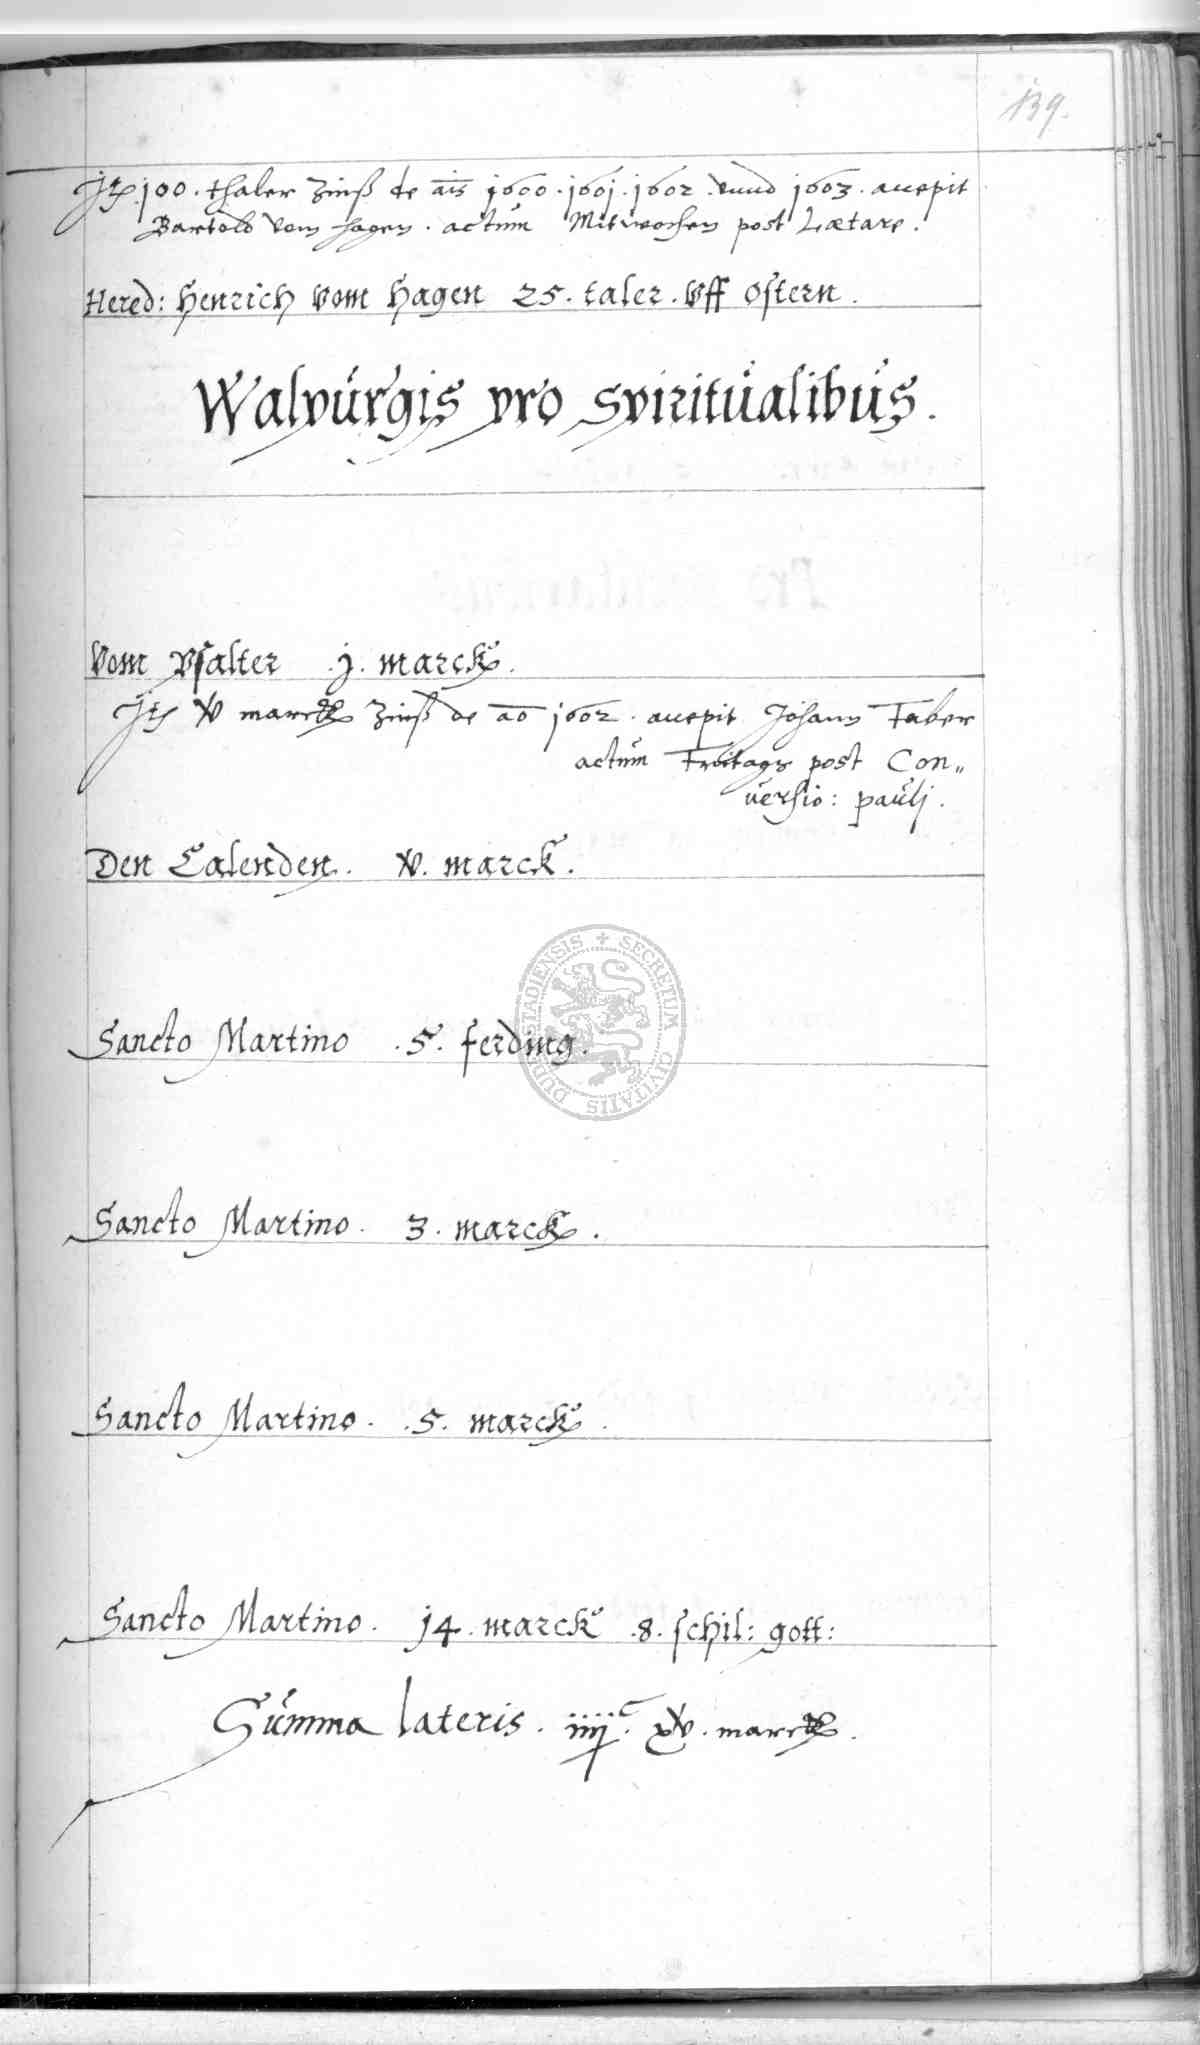 139.
Jtem 100. thaler Zinß de ais 1600. 1601. 1602. vnnd 1603. accepit
Bartold vom Hagen. actum Mitwochen post Lætare.
Hered: Henrich vom Hagen 25. taler. vff Ostern.
Walpurgis pro spiritualibus.
Vom Psalter .j. marck.
Jtem v marck Zinß de ao 1602. accepit Johann Faber
actum Freitags post Con„
uersio: pauli.
Den Calenden. v. marck.
Sancto Martino .5. ferding.
Sancto Martino. 3. marck.
Sancto Martino. .5. marck.
Sancto Martino. 14. marck .8. schil: gott:
Summa lateris. iiijc. xv. marck.
SECRETUM CIVITATIS DUDERSTADIENSIS